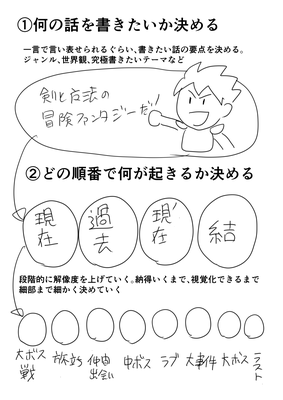 ①何の話を書きたいか決める
一言で言い表せられるぐらい、書きたい話の要点を決める。
ジャンル、世界観、究極書きたいテーマなど
剣と魔法の
冒険ファンタジーだ!
②どの順番で何が起きるか決める
現在 過去 現在 結
段階的に解像度を上げていく。納得いくまで、視覚化できるまで
細部まで細かく決めていく
大ボス戦 旅立ち 仲間出会い 中ボス ラブ 大事件 大ボス ラスト